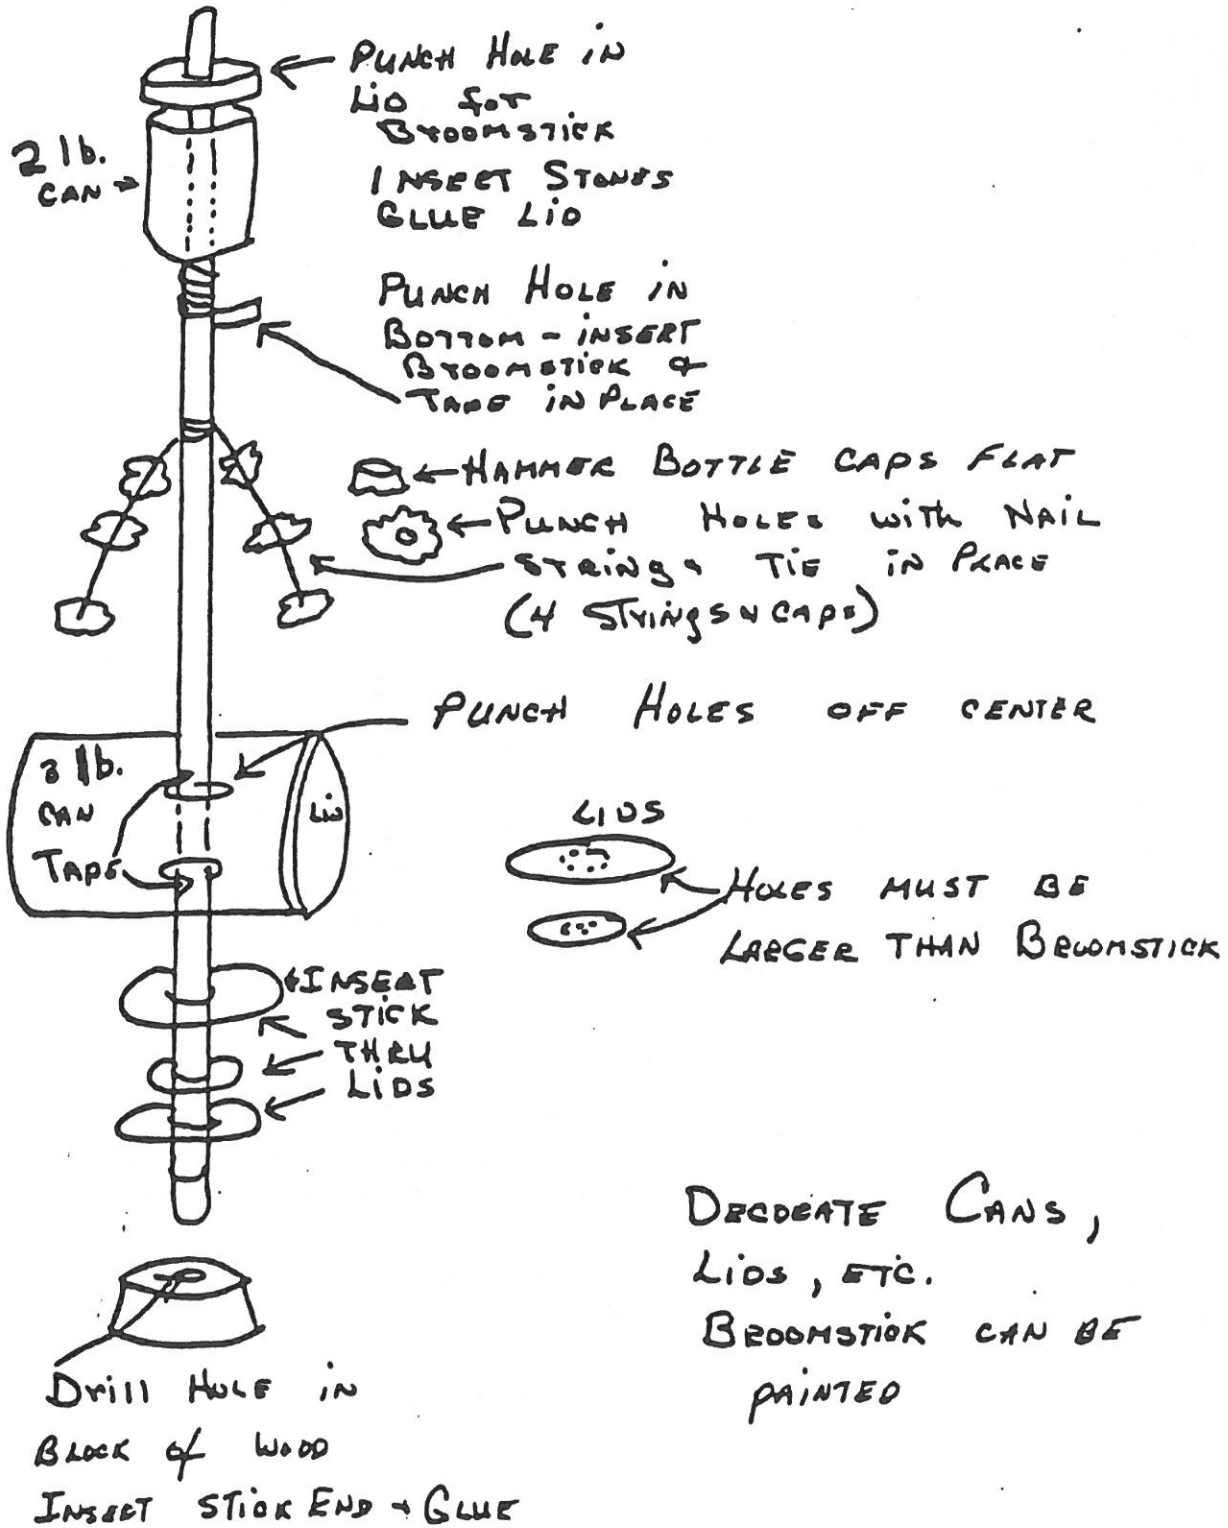 PUNCH HOLE iN
LiD for
BrOOMSTICK
INSERT STONES
GLUE LiD
2 lb.
CAN
PUNCH HOLE iN
BOTTOM - iNSERT
BrOOMSTICK &
TAPE iN PLACE
HAMMER BOTTLE CAPS FLAT
PUNCH HOLES with NAIL
STRING & TIE iN PLACE
(4 STrINgS & CAPS)
PUNCH HOLES OFF CENTER
3 lb.
CAN
LiD
TAPE
LIDS
HOLES MUST BE
LARGER THAN BROOMSTICK
INSERT
STICK
THRU
LiDS
DECORATE CANS,
LiDS, ETC.
BROOMSTICK CAN BE
PAINTED
Drill HOLE iN
BLOCK of WOOD
INSERT STICK END & GLUE